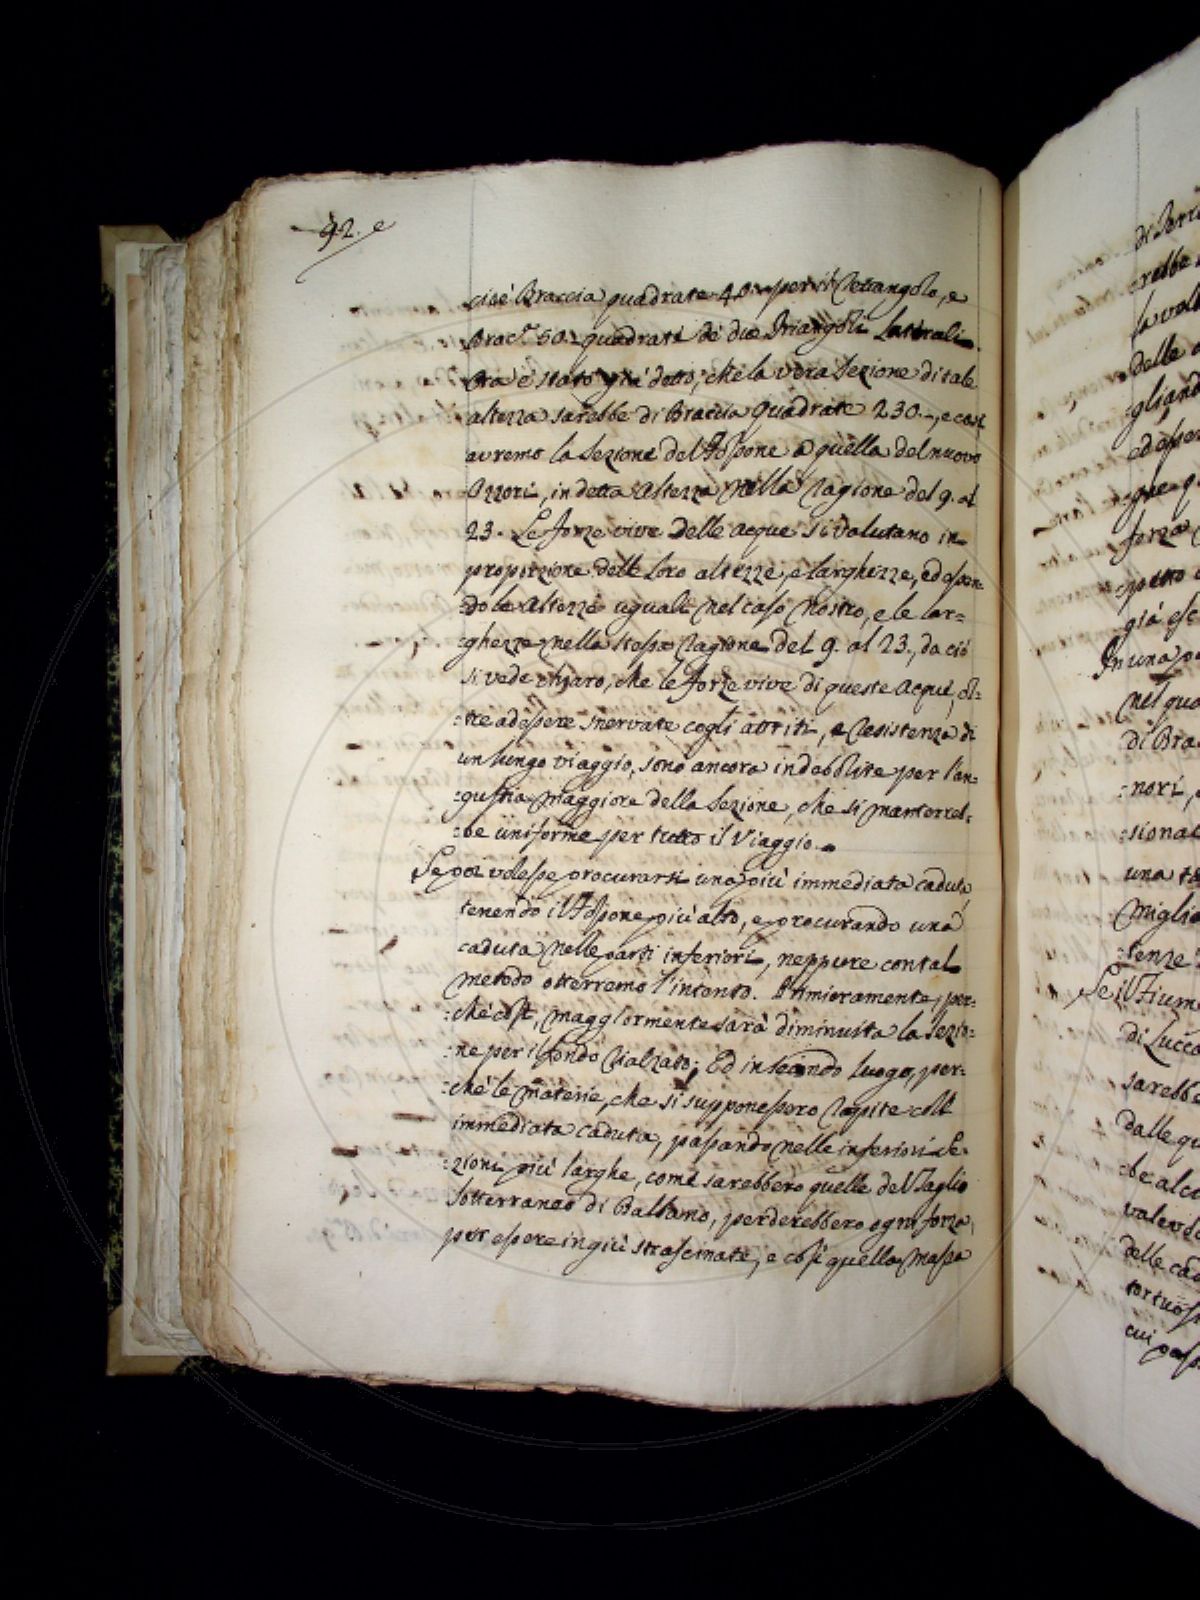 92. e
cioè Braccia quadrate 40. per il Rettangolo, e
Brac.ª 50. quadrati de due Triangoli Laterali.
Ora è stato già detto, che la vera Sezione di tale
altezza sarebbe di Braccia Quadrate 230., e così
avremo la Sezione del Tospone a quella del nuovo
Ozzori, in detta altezza nella ragione del 9. al
23. Le forze vive delle acque si valutano in
proporzione delle loro altezze, e larghezze, ed essen:
do le altezze uguali nel caso nostro, e le lar=
:ghezze nella stessa ragione del 9. al 23., da ciò
si vede chiaro, che le forze vive di queste acque, ol:
:tre ad essere snervate cogli attriti, e resistenza di
un lungo viaggio, sono ancora indebolite per l'an:
:gustia maggiore della Sezione, che si manterreb:
:be uniforme per tutto il Viaggio.
Se poi volesse procurarsi una più immediata caduta,
tenendo il Tospone più alto, e procurando una
caduta nelle parti inferiori, neppure con tal
metodo otterremo l'intento. Primieramente, per:
:chè così, maggiormente sarà diminuita la Sezio:
:ne per il fondo rialzato; Ed in secondo luogo, per:
:chè le materie, che si supponessero rapite coll
immediata caduta, passando nelle inferiori Se:
:zioni più larghe, come sarebbero quelle del Taglio
sotterraneo di Balbano, perderebbero ogni forza,
per essere in giù strascinate, e così quella massa
rebbe
la vol
delle
:gliand
ed esser
forza
:petto
già
In una
nel quo
di Bra
:nori,
:sional
una
miglio
:tenze
Se il Fium
di Lucca
sarebbe
dalle qu
:be alc
delle ca
tortuos
cui pass